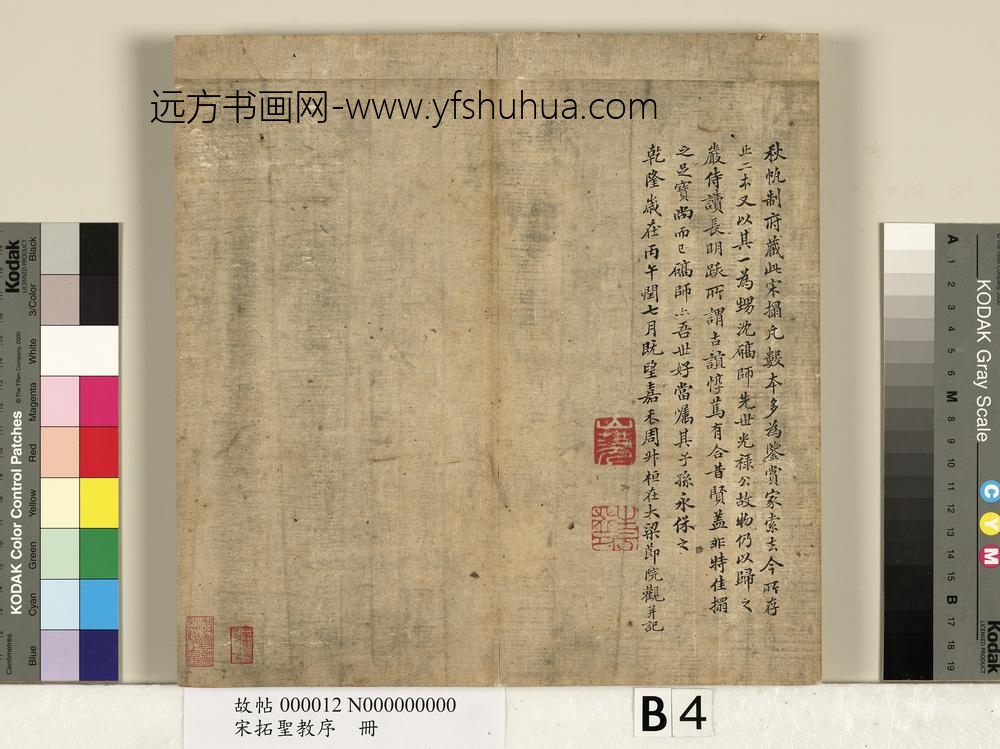 远方书画网-www.yfshuhua.com
秋帆制府藏此宋搨凡數本多為鑒賞家索去今所存
止二本又以其一為甥沈礪師先世光祿公故物仍以歸之
嚴侍讀長明跋所謂古誼惇篤有合昔賢蓋非特佳搨
之足寶尚而已礪師亦吾世好當囑其子孫永保之
乾隆歲在丙午閏七月既望嘉禾周升桓在大梁節院觀并記
故帖 000012 N000000000
宋拓聖教序 冊
B 4
Kodak
LICENSED PRODUCT
KODAK Color Control Patches
© The Tiffen Company, 2000
Centimetres
Blue
Cyan
Green
Yellow
Red
Magenta
White
3/Color
Black
KODAK Gray Scale
C
Y
M
Kodak
LICENSED PRODUCT
A
1
2
3
4
5
6
M
8
9
10
11
12
13
14
15
B
17
18
19